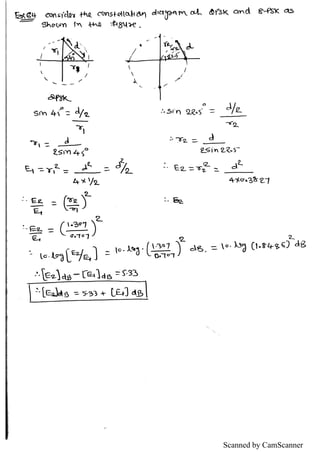 Ex:84 consider the constellation diagram of QPSK and 8-PSK as
shown in the figure.
r1 d 45° r2 d 22.5°
QPSK
sin 45° = d/2 / r1 ∴ sin 22.5° = d/2 / r2
r1 = d / 2sin45° ∴ r2 = d / 2sin22.5°
E1 = r1² = d² / 4×1/2 = d²/2 ∴ E2 = r2² = d² / 4×0.3827
∴ E2/E1 = (r2/r1)² ∴ E2
∴ E2/E1 = (1.307/0.707)²
∴ 10.log[E2/E1] = 10.log.(1.307/0.707)² dB. = 10.log (1.8486)² dB
∴ [E2]dB - [E1]dB = 5.33
∴ [E2]dB = 5.33 + [E1] dB
Scanned by CamScanner